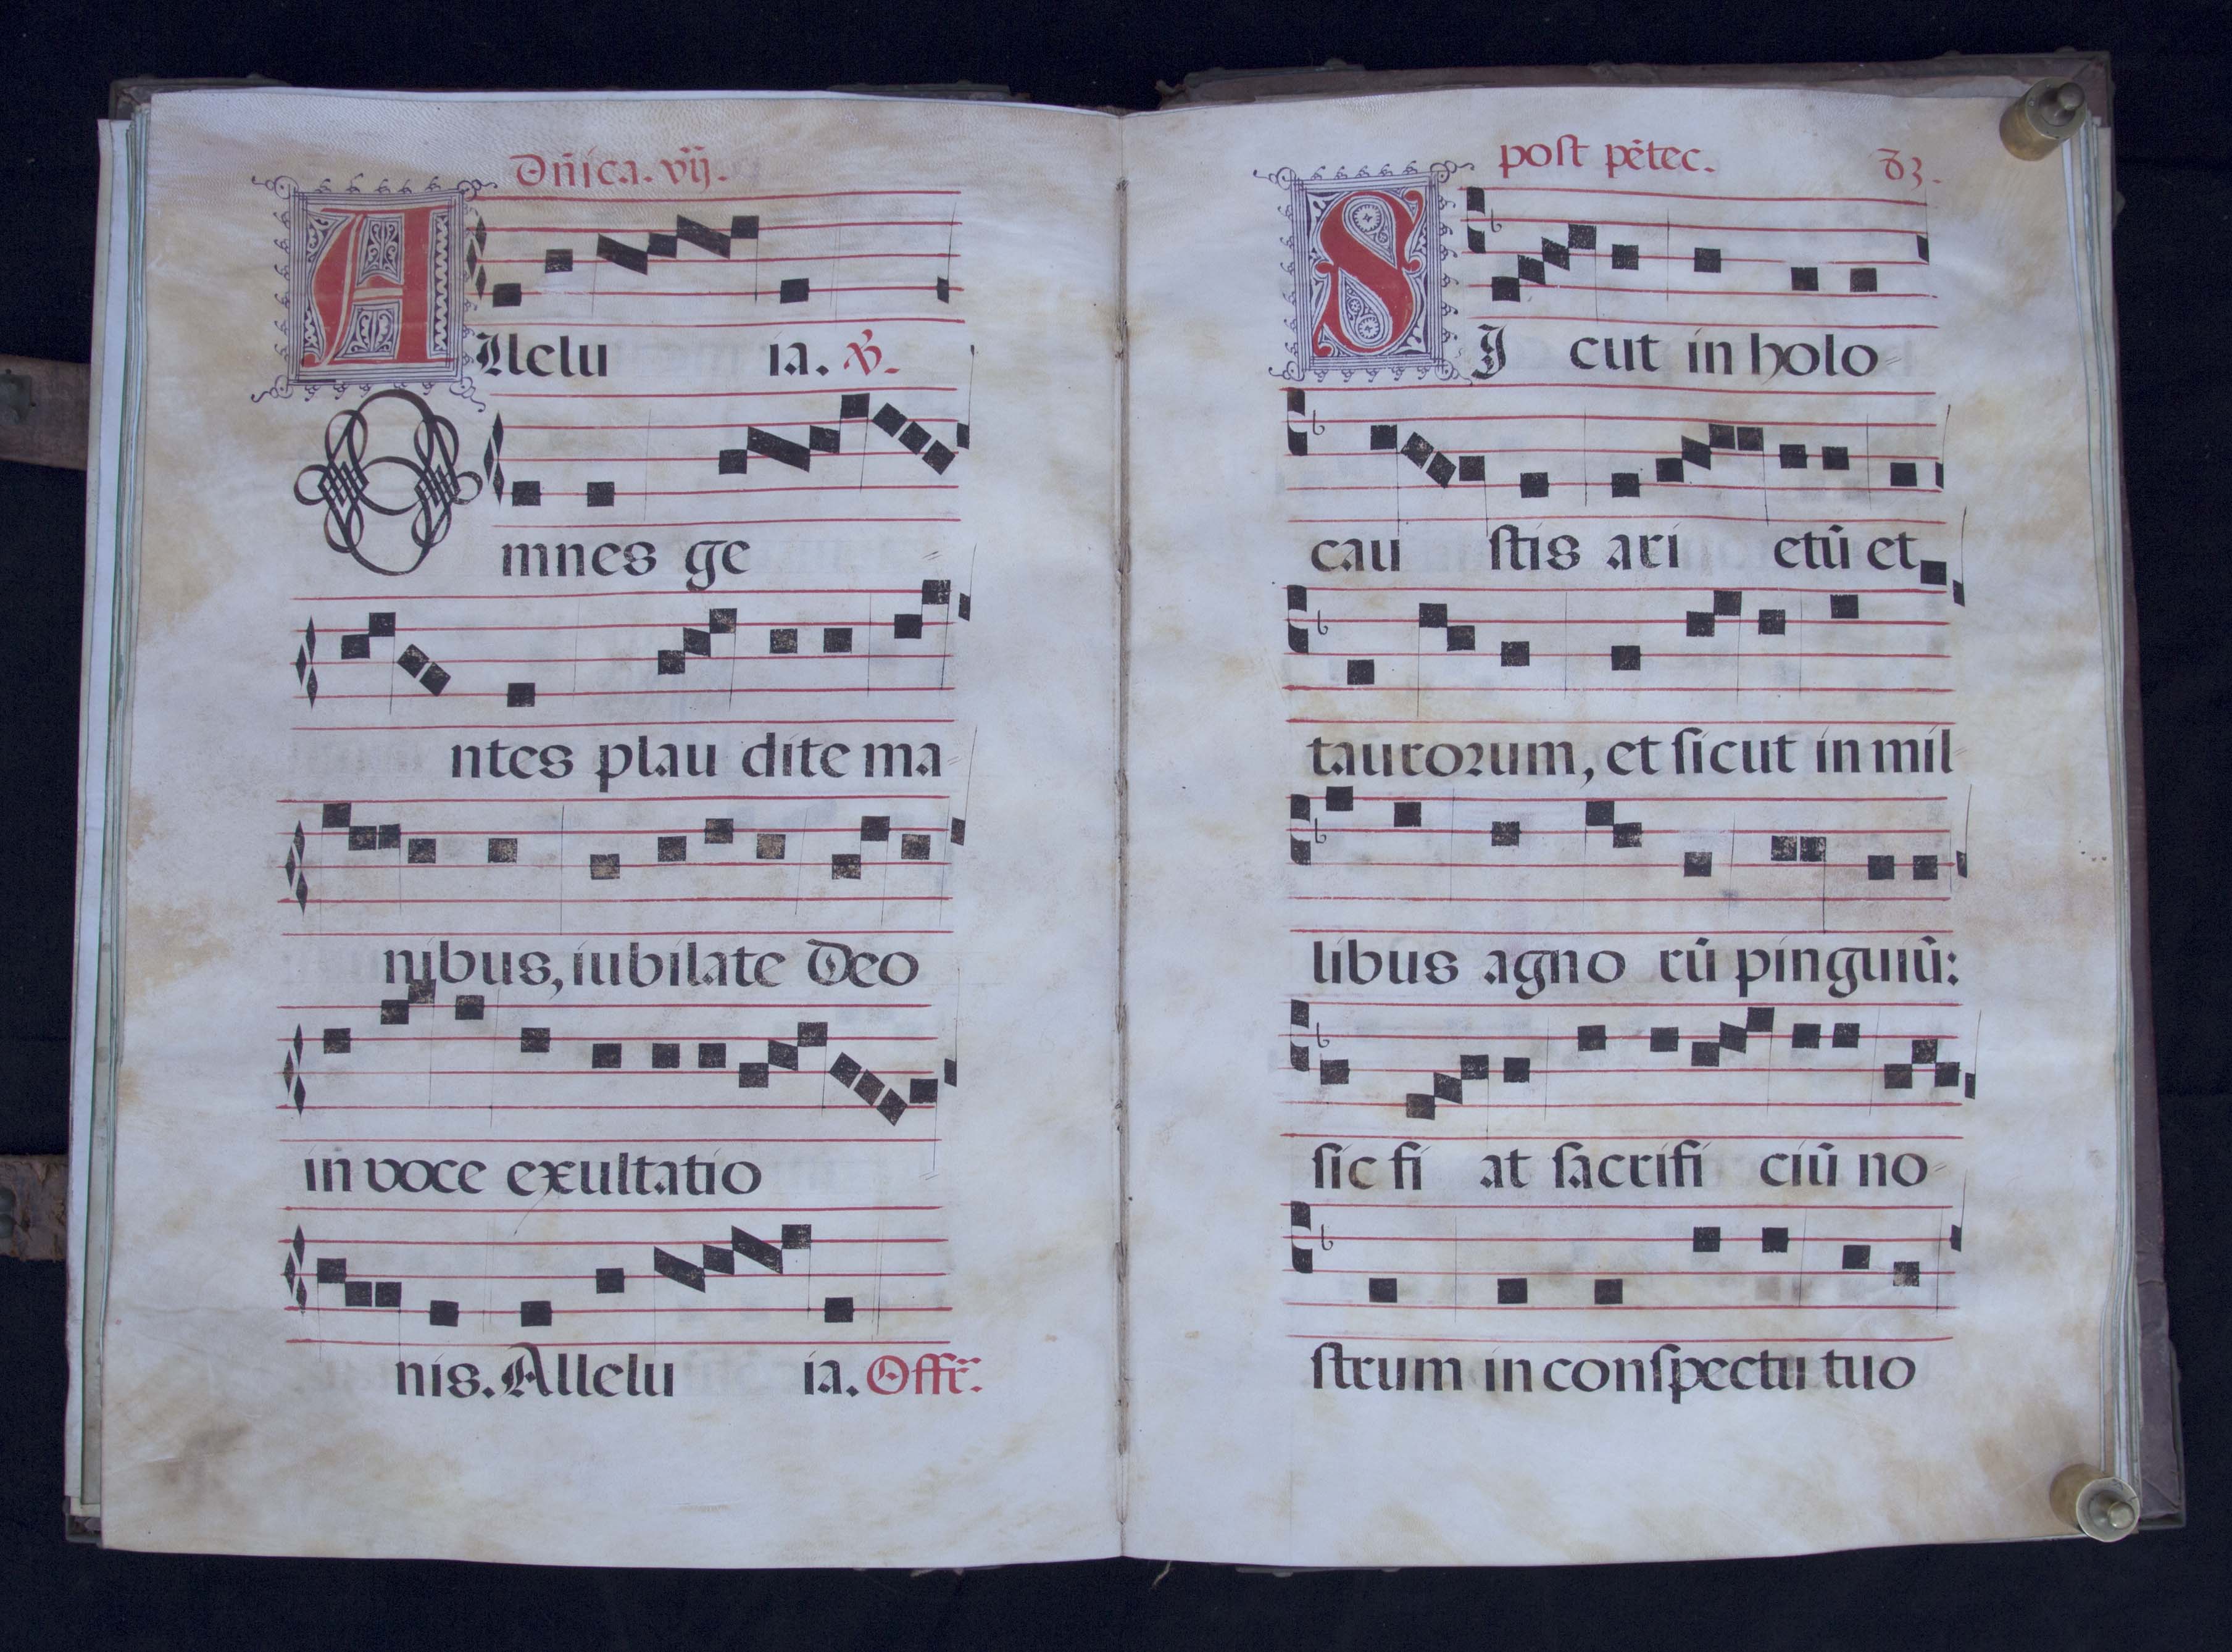 Dñica. vij.
Allelu ia. ℣.
Omnes ge
ntes plau dite ma-
nibus, iubilate Deo
in voce exultatio
nis. Allelu ia. Offr̃.
post pẽtec. 83.
SI cut in holo-
cau stis ari etũ et
taurorum, et sicut in mil-
libus agno rũ pinguiũ:
sic fi at sacrifi ciũ no-
strum in conspectu tuo